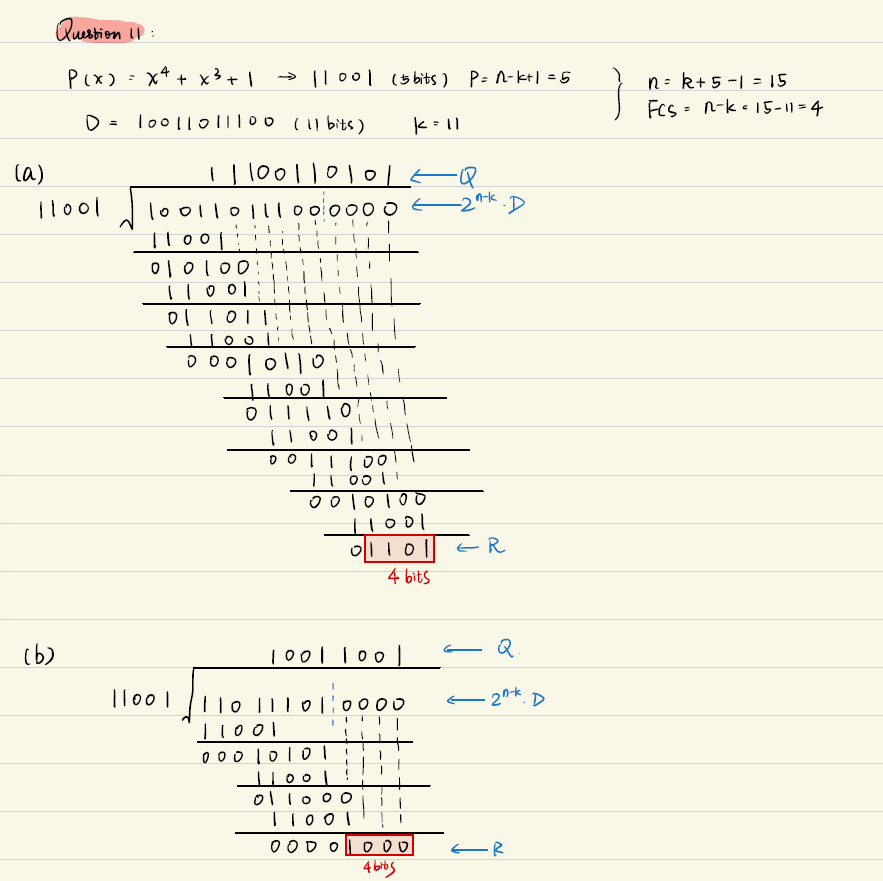 Question 11 :
P(x) = x⁴ + x³ + 1 → 11001 (5 bits) P = n-k+1 = 5 } n = k+5-1 = 15
FCS = n-k = 15-11 = 4
D = 10011011100 (11 bits) k = 11
(a)
11100110101 ← Q
11001 √100110111000000 ← 2ⁿ⁻ᵏ.D
11001
010100
11001
011011
11001
00010110
11001
011110
11001
0011100
11001
0010100
11001
01101 ← R
4 bits
(b)
10011001 ← Q.
11001 √110111010000 ← 2ⁿ⁻ᵏ.D
11001
00010101
11001
011000
11001
00001000 ← R
4 bits